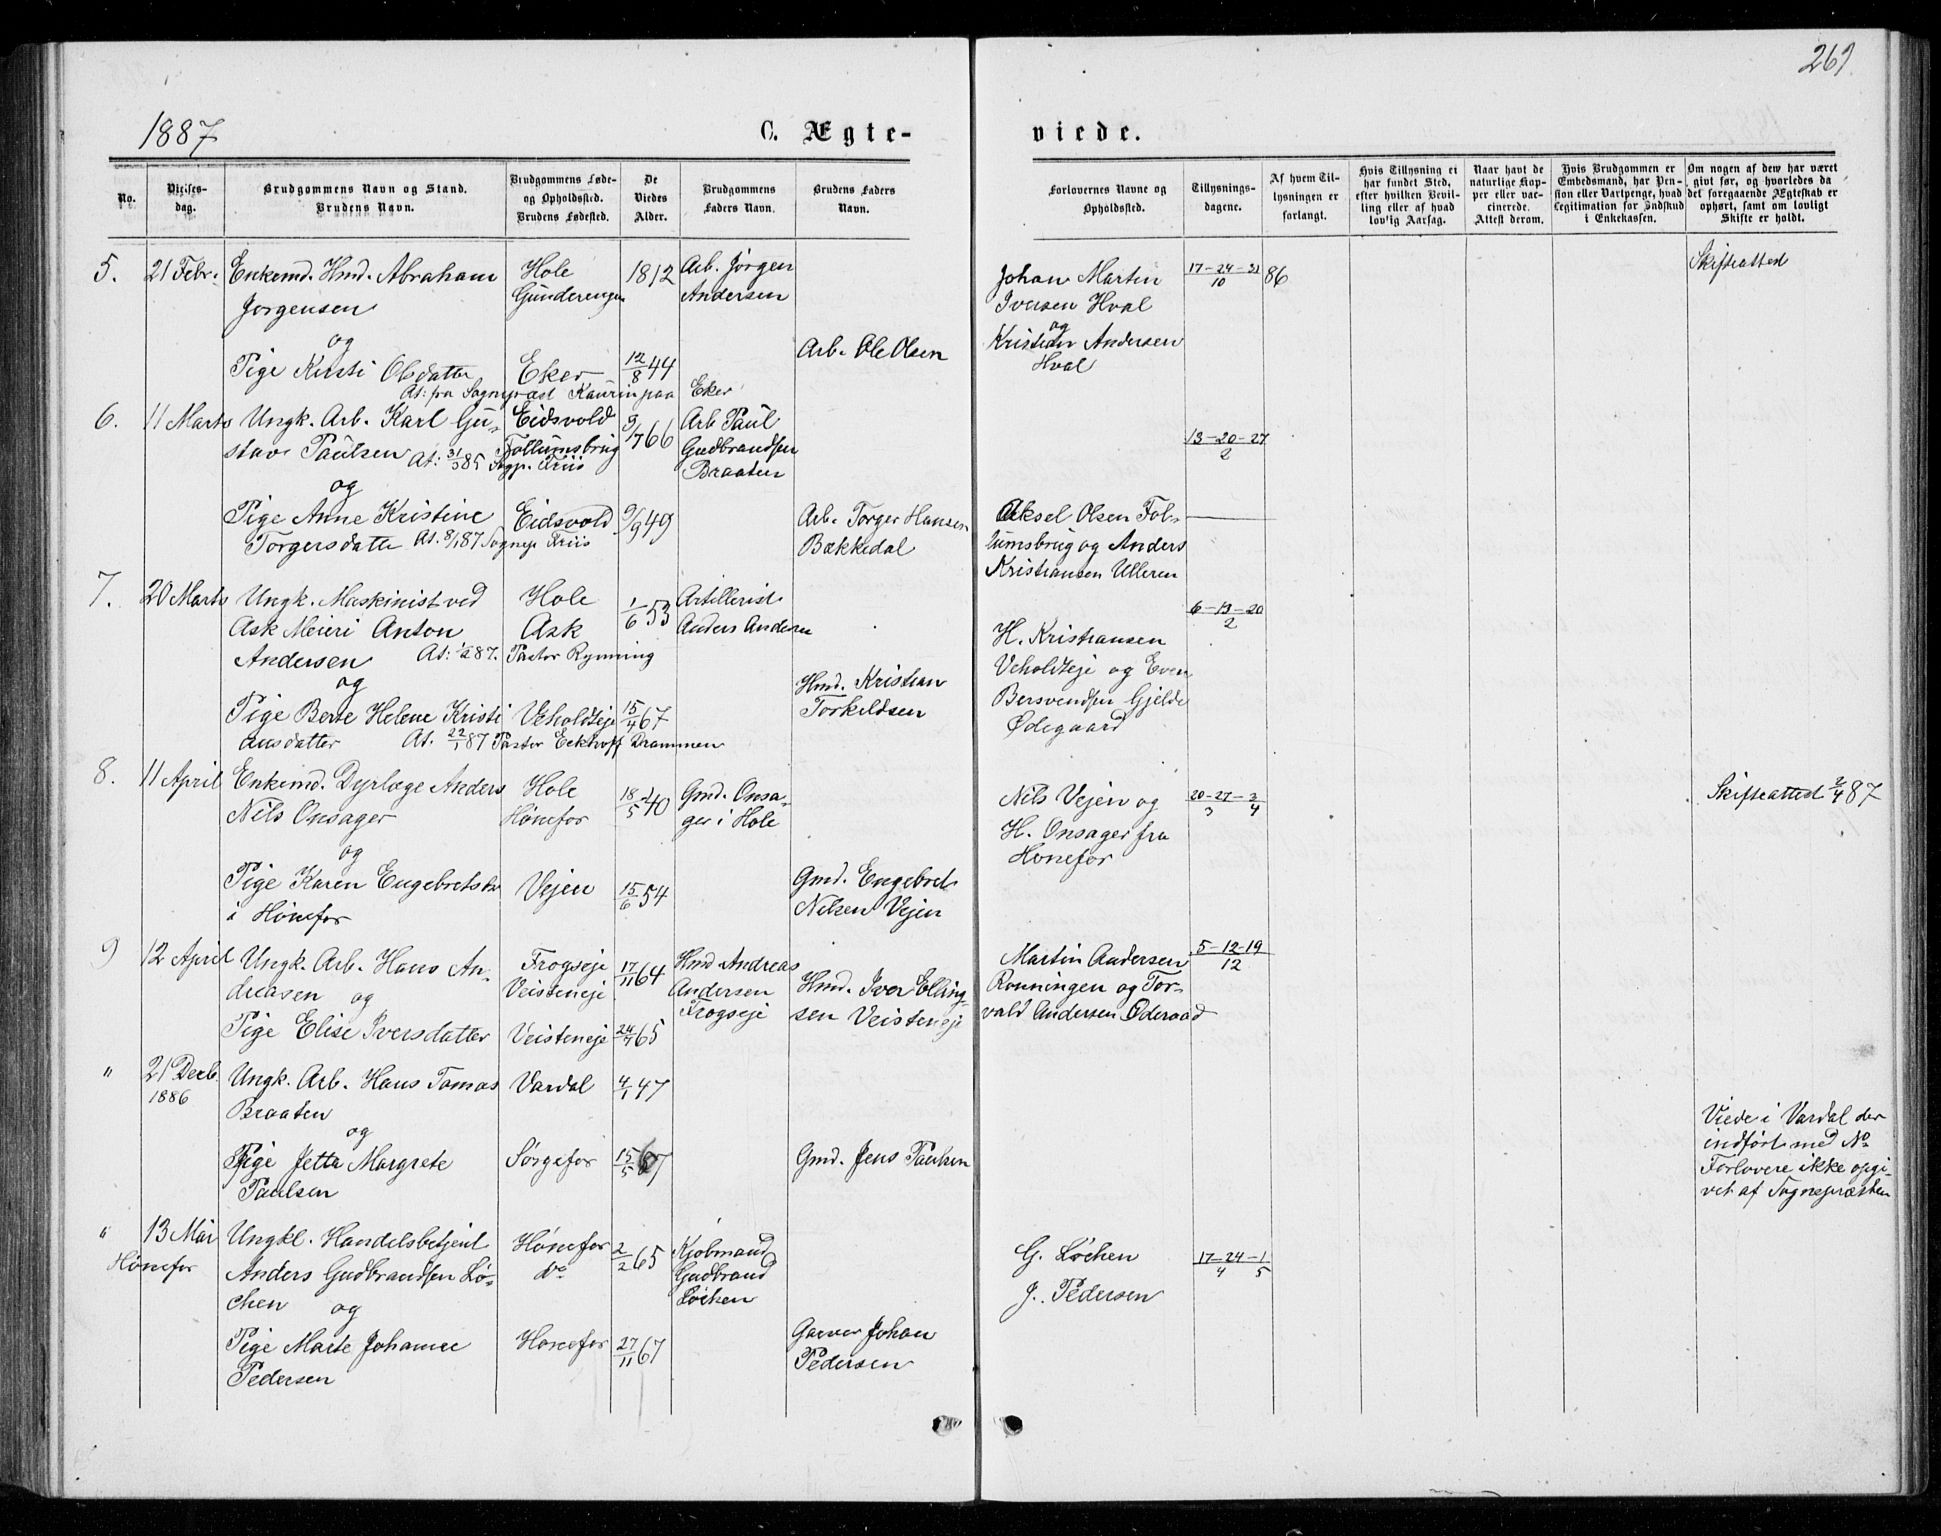 261
1887
C. Ægte-
viede.
No.
Vielses-
dag.
Brudgommens Navn og Stand.
Brudens Navn.
Brudgommens Føde-
og Opholdssted.
Brudens Fødested.
De
Viedes
Alder.
Brudgommens
Faders Navn.
Brudens Faders
Navn.
Forlovernes Navne og
Opholdssted.
Tillysnings-
dagene.
Af hvem Til-
lysningen er
forlangt.
Hvis Tillysning ei
har fundet Sted,
efter hvilken Bevil-
ling eller af hvad
lovlig Aarsag.
Naar havt de
naturlige Kop-
per eller vac-
cinerede.
Attest derom.
Hvis Brudgommen er
Embedsmand, har Pen-
sion eller Vartpenge, hvad
Legitimation for Indskud
i Enkekassen.
Om nogen af dem har været
givt før, og hvorledes da
det foregaaende Ægteskab er
ophørt, samt om lovligt
Skifte er holdt.
5. 21 Febr. Enkemd. Hmd. Abraham
Jorgensen
og
Pige Kirsti Olsdatter
Hole
Gunderengen
Eker
1812
12/8 44
Arb. Jörgen
Andersen
Arb. Ole Olsen
At: fra Sognepræst Kaurin paa Eker
Johan Martin
Iversen Hval
og
Kristian Andersen
Hval
17-24-31/10 86
Skifteattest
6. 11 Marts Ungk. Arb. Karl Gu-
stav Paulsen
At: 31/3 85 Sogp. Friis
og
Pige Anne Kristine
Torgersdatter At. 8/1 87 Sognep Friis
Eidsvold
Follumsbrug
Eidsvold
9/7 66
9/9 49
Arb Paul
Gudbrandsen
Braaten
Arb. Torger Hansen
Bækkedal
13-20-27/2
Aksel Olsen Fol-
lumsbrug og Anders
Kristiansen Ulleren
7. 20 Marts Ungk. Maskinist ved
Ask Meieri Anton
Andersen
At: 1/2 87. Pastor Rynning
og
Pige Berte Helene Kristi
ansdatter
At. 22/1 87 Pastor Eckhoff Drammen
Hole
Ask
Veholdteje
1/6 53
15/4 67
Artillerist
Anders Andersen
Hmd. Kristian
Torkildsen
H. Kristiansen
Veholdteje og Even
Bersvendsen Gjelde
Ødegaard
6-13-20/2
8. 11 April Enkemd. Dyrlæge Anders
Nils Onsager
og
Pige Karen Engebretsdr
i Hönefos
Hole
Hönefos
Vejen
18/5 40
15/6 54
Gmd. Onsa-
ger i Hole
Gmd. Engebret
Nilsen Vejen
Nils Vejen og
H. Onsager fra
Honefos
20-27/3-3/4
Skifteattest 2/4 87
9 12 April Ungk. Arb. Hans An-
dreasen og
Pige Elise Iversdatter
Frogseje
Veisteneje
Veisteneje
17/11 64
24/7 65
Hmd Andreas
Andersen
Frogseje
Hmd. Iver Elling-
sen Veisteneje
Martin Andersen
Ronningen og Tor-
vald Andersen Oderaad
5-12-19/12
" 21 Decb.
1886
Ungk. Arb. Hans Tomas
Braaten
og
Pige Jetta Margrete
Paulsen
Vardal
Sörgefos
4/1 47
15/5 67
Gmd. Jens Paulsen
Viede i Vardal der
indfört med No
Forlovere ikke opgi-
vet af Sognepræsten
" 13 Mai
Hönefos
Ungkl. Handelsbetjent
Anders Gudbrandsen Lö-
chen og
Pige Marte Johanne
Pedersen
Hönefos
do
Honefos
2/2 65
27/11 67
Kjobmand
Gudbrand
Löchen
Garver Johan
Pedersen
G. Löchen
J. Pedersen
17-24/4-1/5